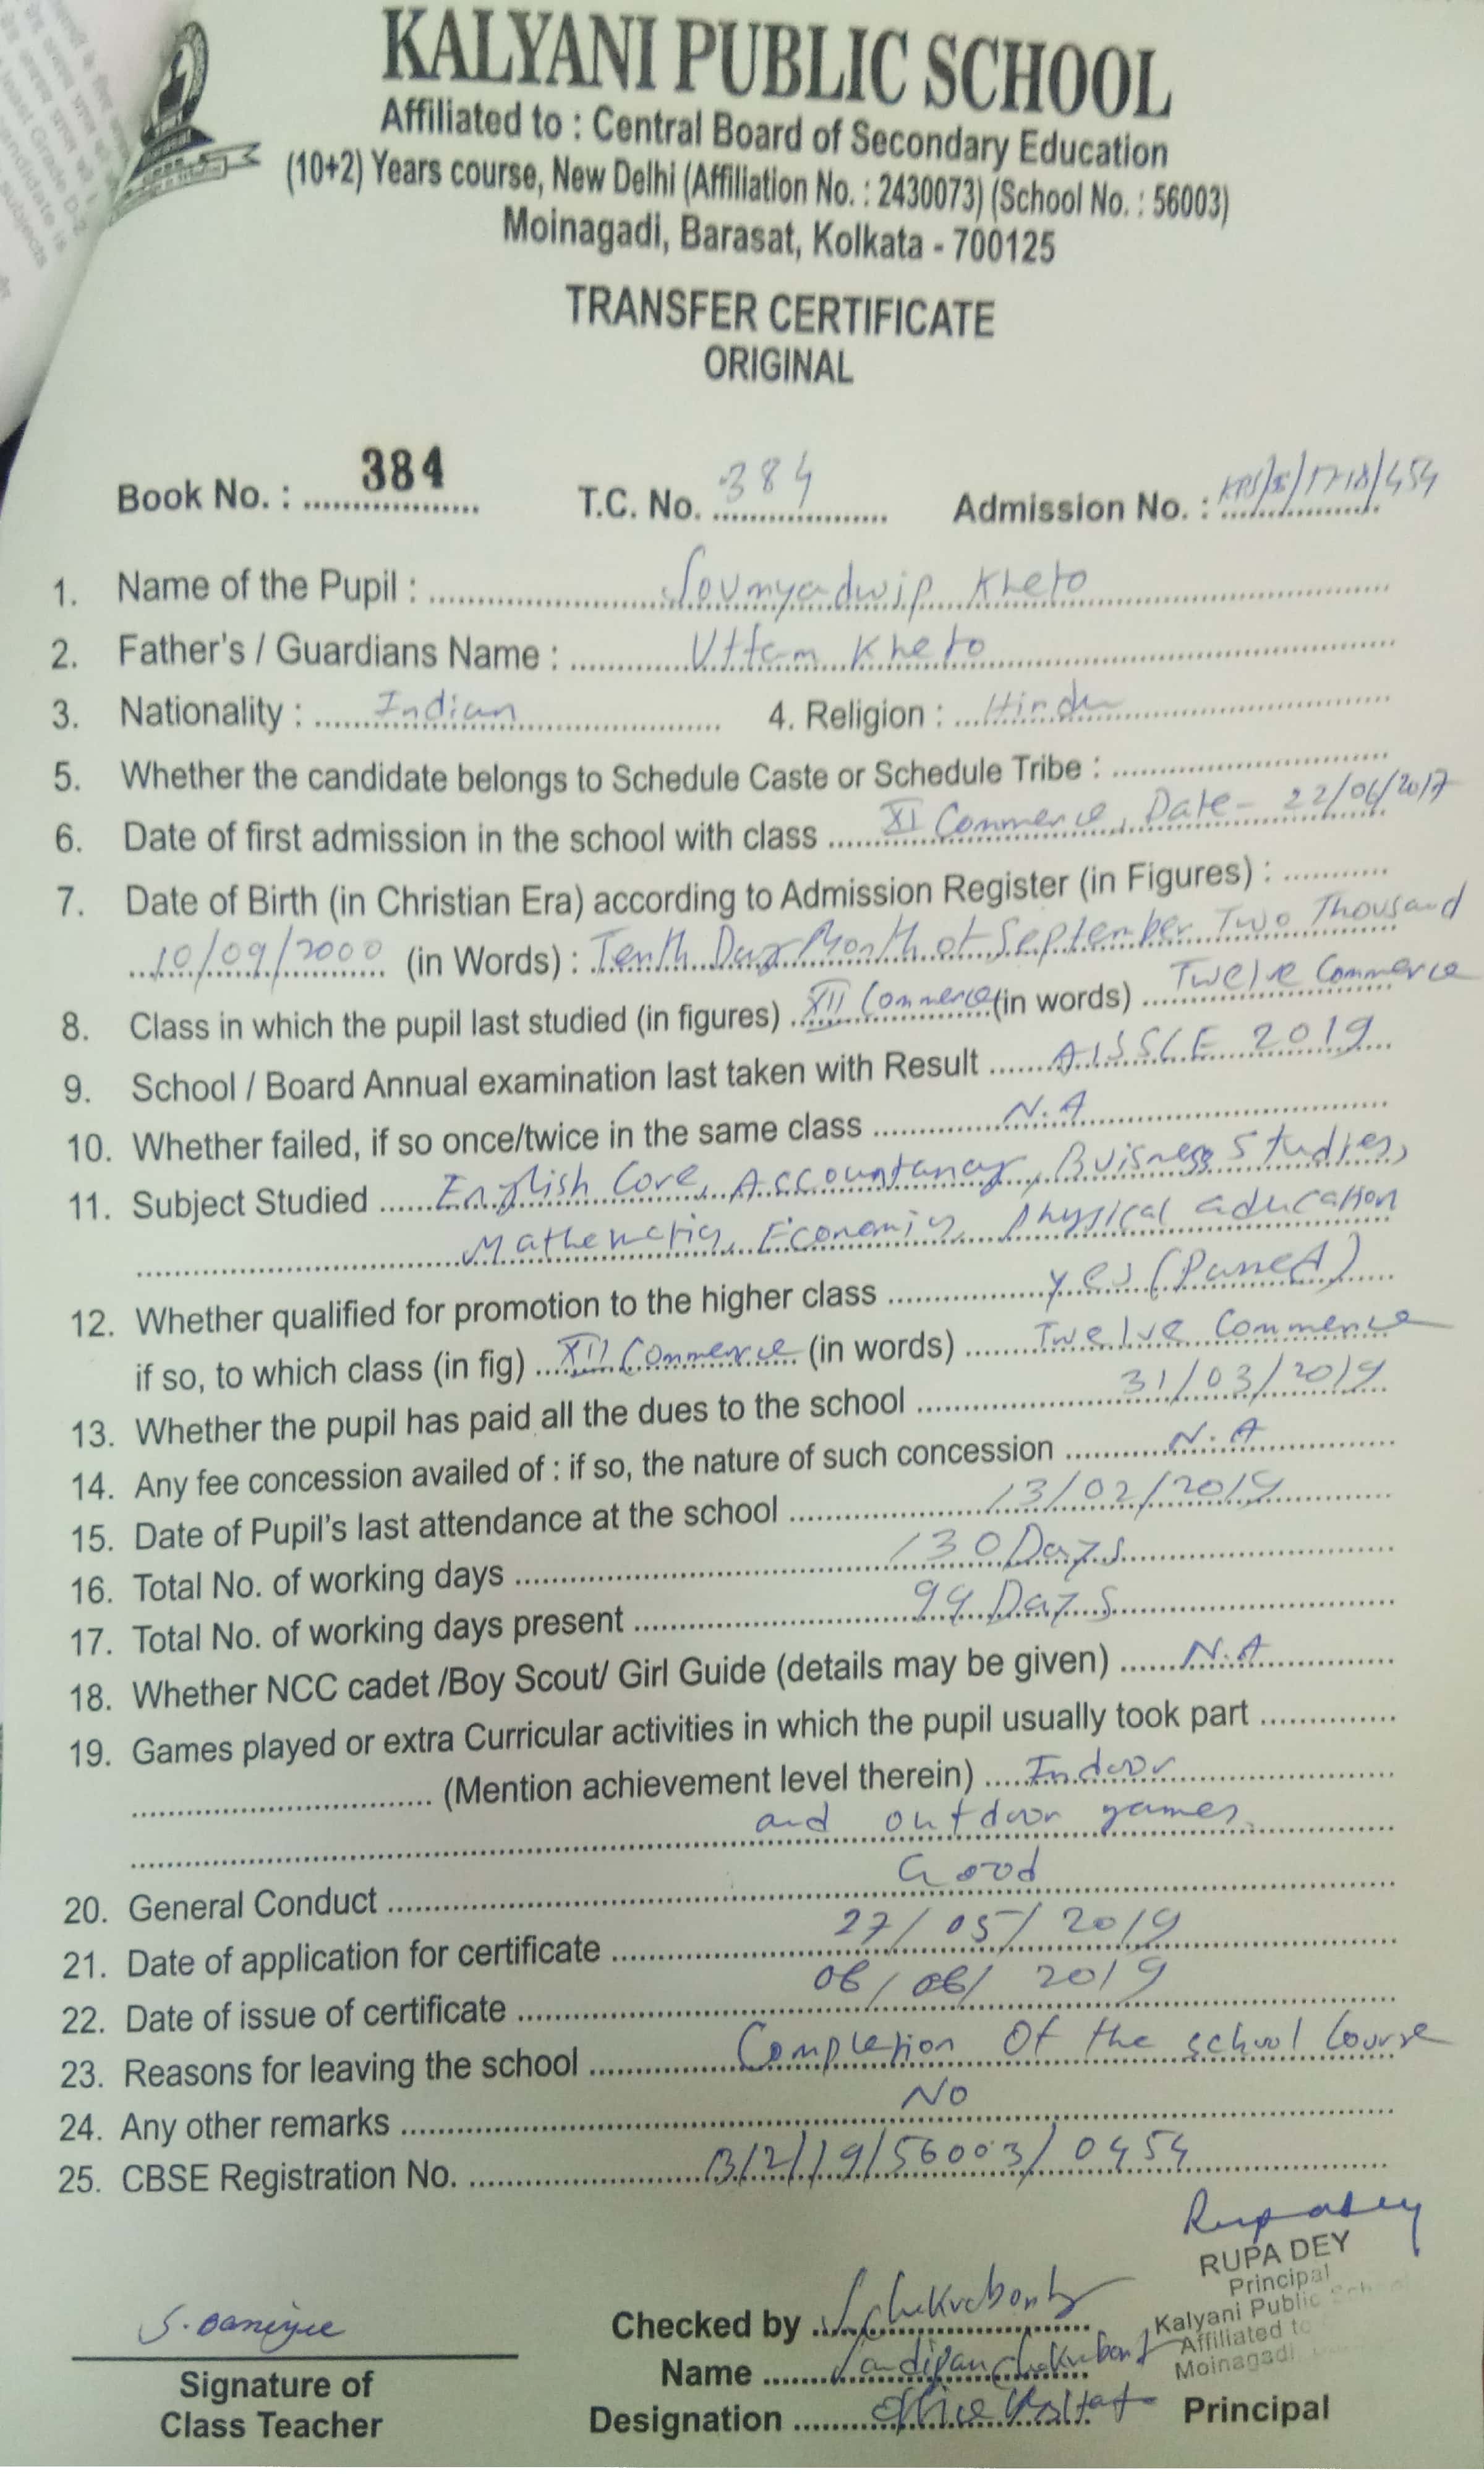 KALYANI PUBLIC SCHOOL
Affiliated to : Central Board of Secondary Education
(10+2) Years course, New Delhi (Affiliation No. : 2430073) (School No. : 56003)
Moinagadi, Barasat, Kolkata - 700125
TRANSFER CERTIFICATE
ORIGINAL
Book No. : 384 T.C. No. 384 Admission No. : KPS/XI/17-18/454
1. Name of the Pupil : Soumyadwip Kheto
2. Father's / Guardians Name : Uttam Kheto
3. Nationality : Indian 4. Religion : Hindu
5. Whether the candidate belongs to Schedule Caste or Schedule Tribe :
6. Date of first admission in the school with class XI Commerce, Date- 22/06/2017
7. Date of Birth (in Christian Era) according to Admission Register (in Figures) :
10/09/2000 (in Words) : Tenth Day Month of September Two Thousand
8. Class in which the pupil last studied (in figures) XII Commerce (in words) Twelve Commerce
9. School / Board Annual examination last taken with Result AISSCE 2019
10. Whether failed, if so once/twice in the same class N.A
11. Subject Studied English Core, Accountancy, Buisness Studies,
Mathematics, Economics, Physical aducation
12. Whether qualified for promotion to the higher class Yes (Passed)
if so, to which class (in fig) XII Commerce (in words) Twelve Commerce
13. Whether the pupil has paid all the dues to the school 31/03/2019
14. Any fee concession availed of : if so, the nature of such concession N.A
15. Date of Pupil's last attendance at the school 13/02/2019
16. Total No. of working days 130 Days
17. Total No. of working days present 99 Days
18. Whether NCC cadet /Boy Scout/ Girl Guide (details may be given) N.A
19. Games played or extra Curricular activities in which the pupil usually took part
(Mention achievement level therein) Indoor
and outdoor games
20. General Conduct Good
21. Date of application for certificate 27/05/2019
22. Date of issue of certificate 06/06/2019
23. Reasons for leaving the school Completion Of the school Course
24. Any other remarks No
25. CBSE Registration No. B/2/19/56003/0454
Rupa Dey
RUPA DEY
Principal
Kalyani Public School
Affiliated to
Moinagadi
S. Banerjee
Checked by S Chakraborty
Name Sandipan Chakraborty
Signature of
Class Teacher
Designation Office Principal